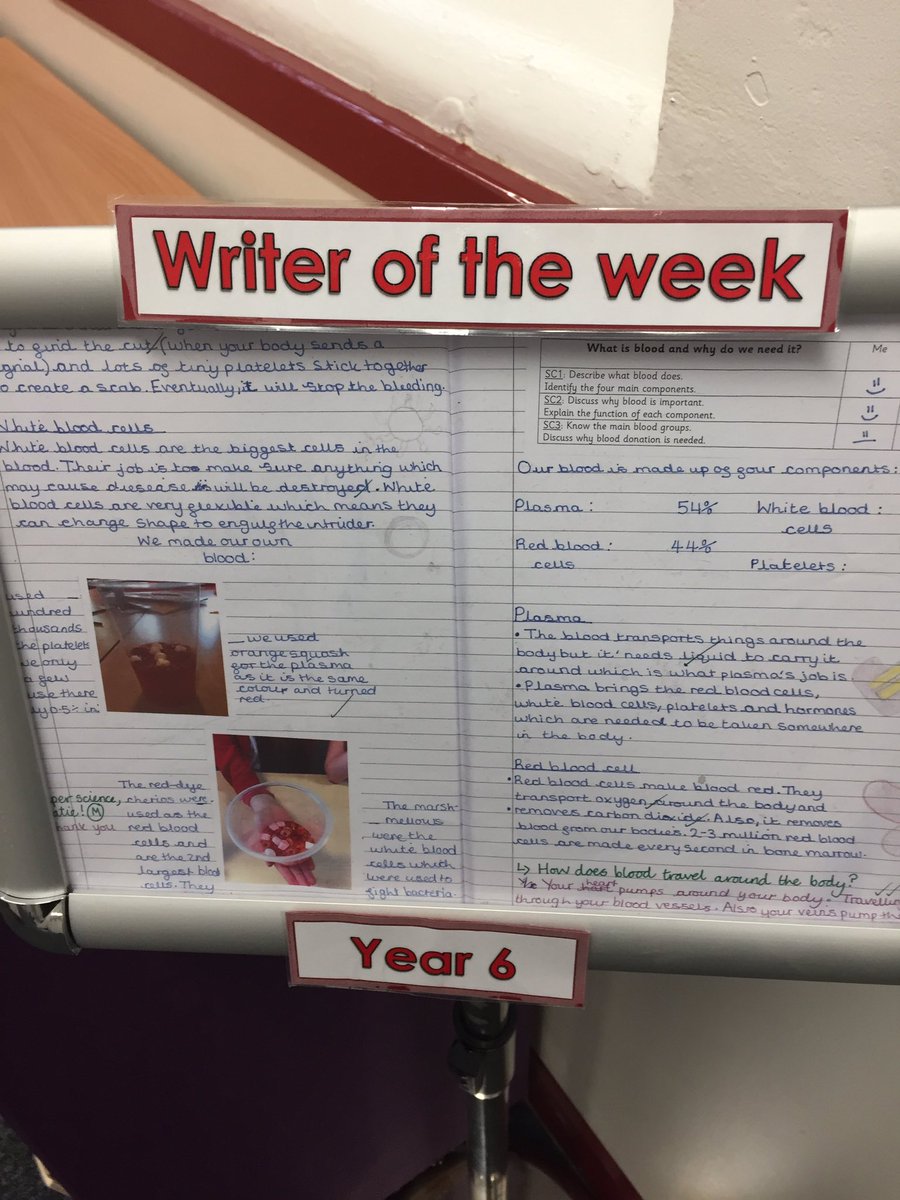 Writer of the week
to gurid the cut (when your body sends a
gnial) and lots of tiny platelets stick together
o create a scab. Eventually, it will stop the bleeding.
White blood cells
White blood cells are the biggest cells in the
blood. Their job is too make sure anything which
may cause diesease will be destroyed. White
blood cells are very flexible which means they
can change shape to engulg the intruder.
We made our own
blood:
used
undred
thousands
the platelets
we only
a few
use there
ly 0.5% in
we used
orange squash
for the plasma
as it is the same
colour and turned
red.
per science,
atie! M
hank you
The red-dye
cherios were
used as the
red blood
cells and
are the 2nd
largest blod
cells. They
The marsh-
mellows
were the
white blood
cells which
were used to
fight bacteria.
What is blood and why do we need it? Me
SC1: Describe what blood does.
Identify the four main components.
SC2: Discuss why blood is important.
Explain the function of each component.
SC3: Know the main blood groups.
Discuss why blood donation is needed.
Our blood is made up of four components:
Plasma: 54% White blood:
cells
Red blood: 44%
cells Platelets:
Plasma
• The blood transports things around the
body but it needs liquid to carry it
around which is what plasma's job is.
• Plasma brings the red blood cells,
white blood cells, platelets and hormones
which are needed to be taken somewhere
in the body.
Red blood cell
• Red blood cells make blood red. They
transport oxygen around the body and
• removes carbon dioxide. Also, it removes
blood from our bodies. 2-3 million red blood
cells are made every second in bone marrow.
↳ How does blood travel around the body?
Your heart pumps around your body. Travellin
through your blood vessels. Also your veins pump th
Year 6